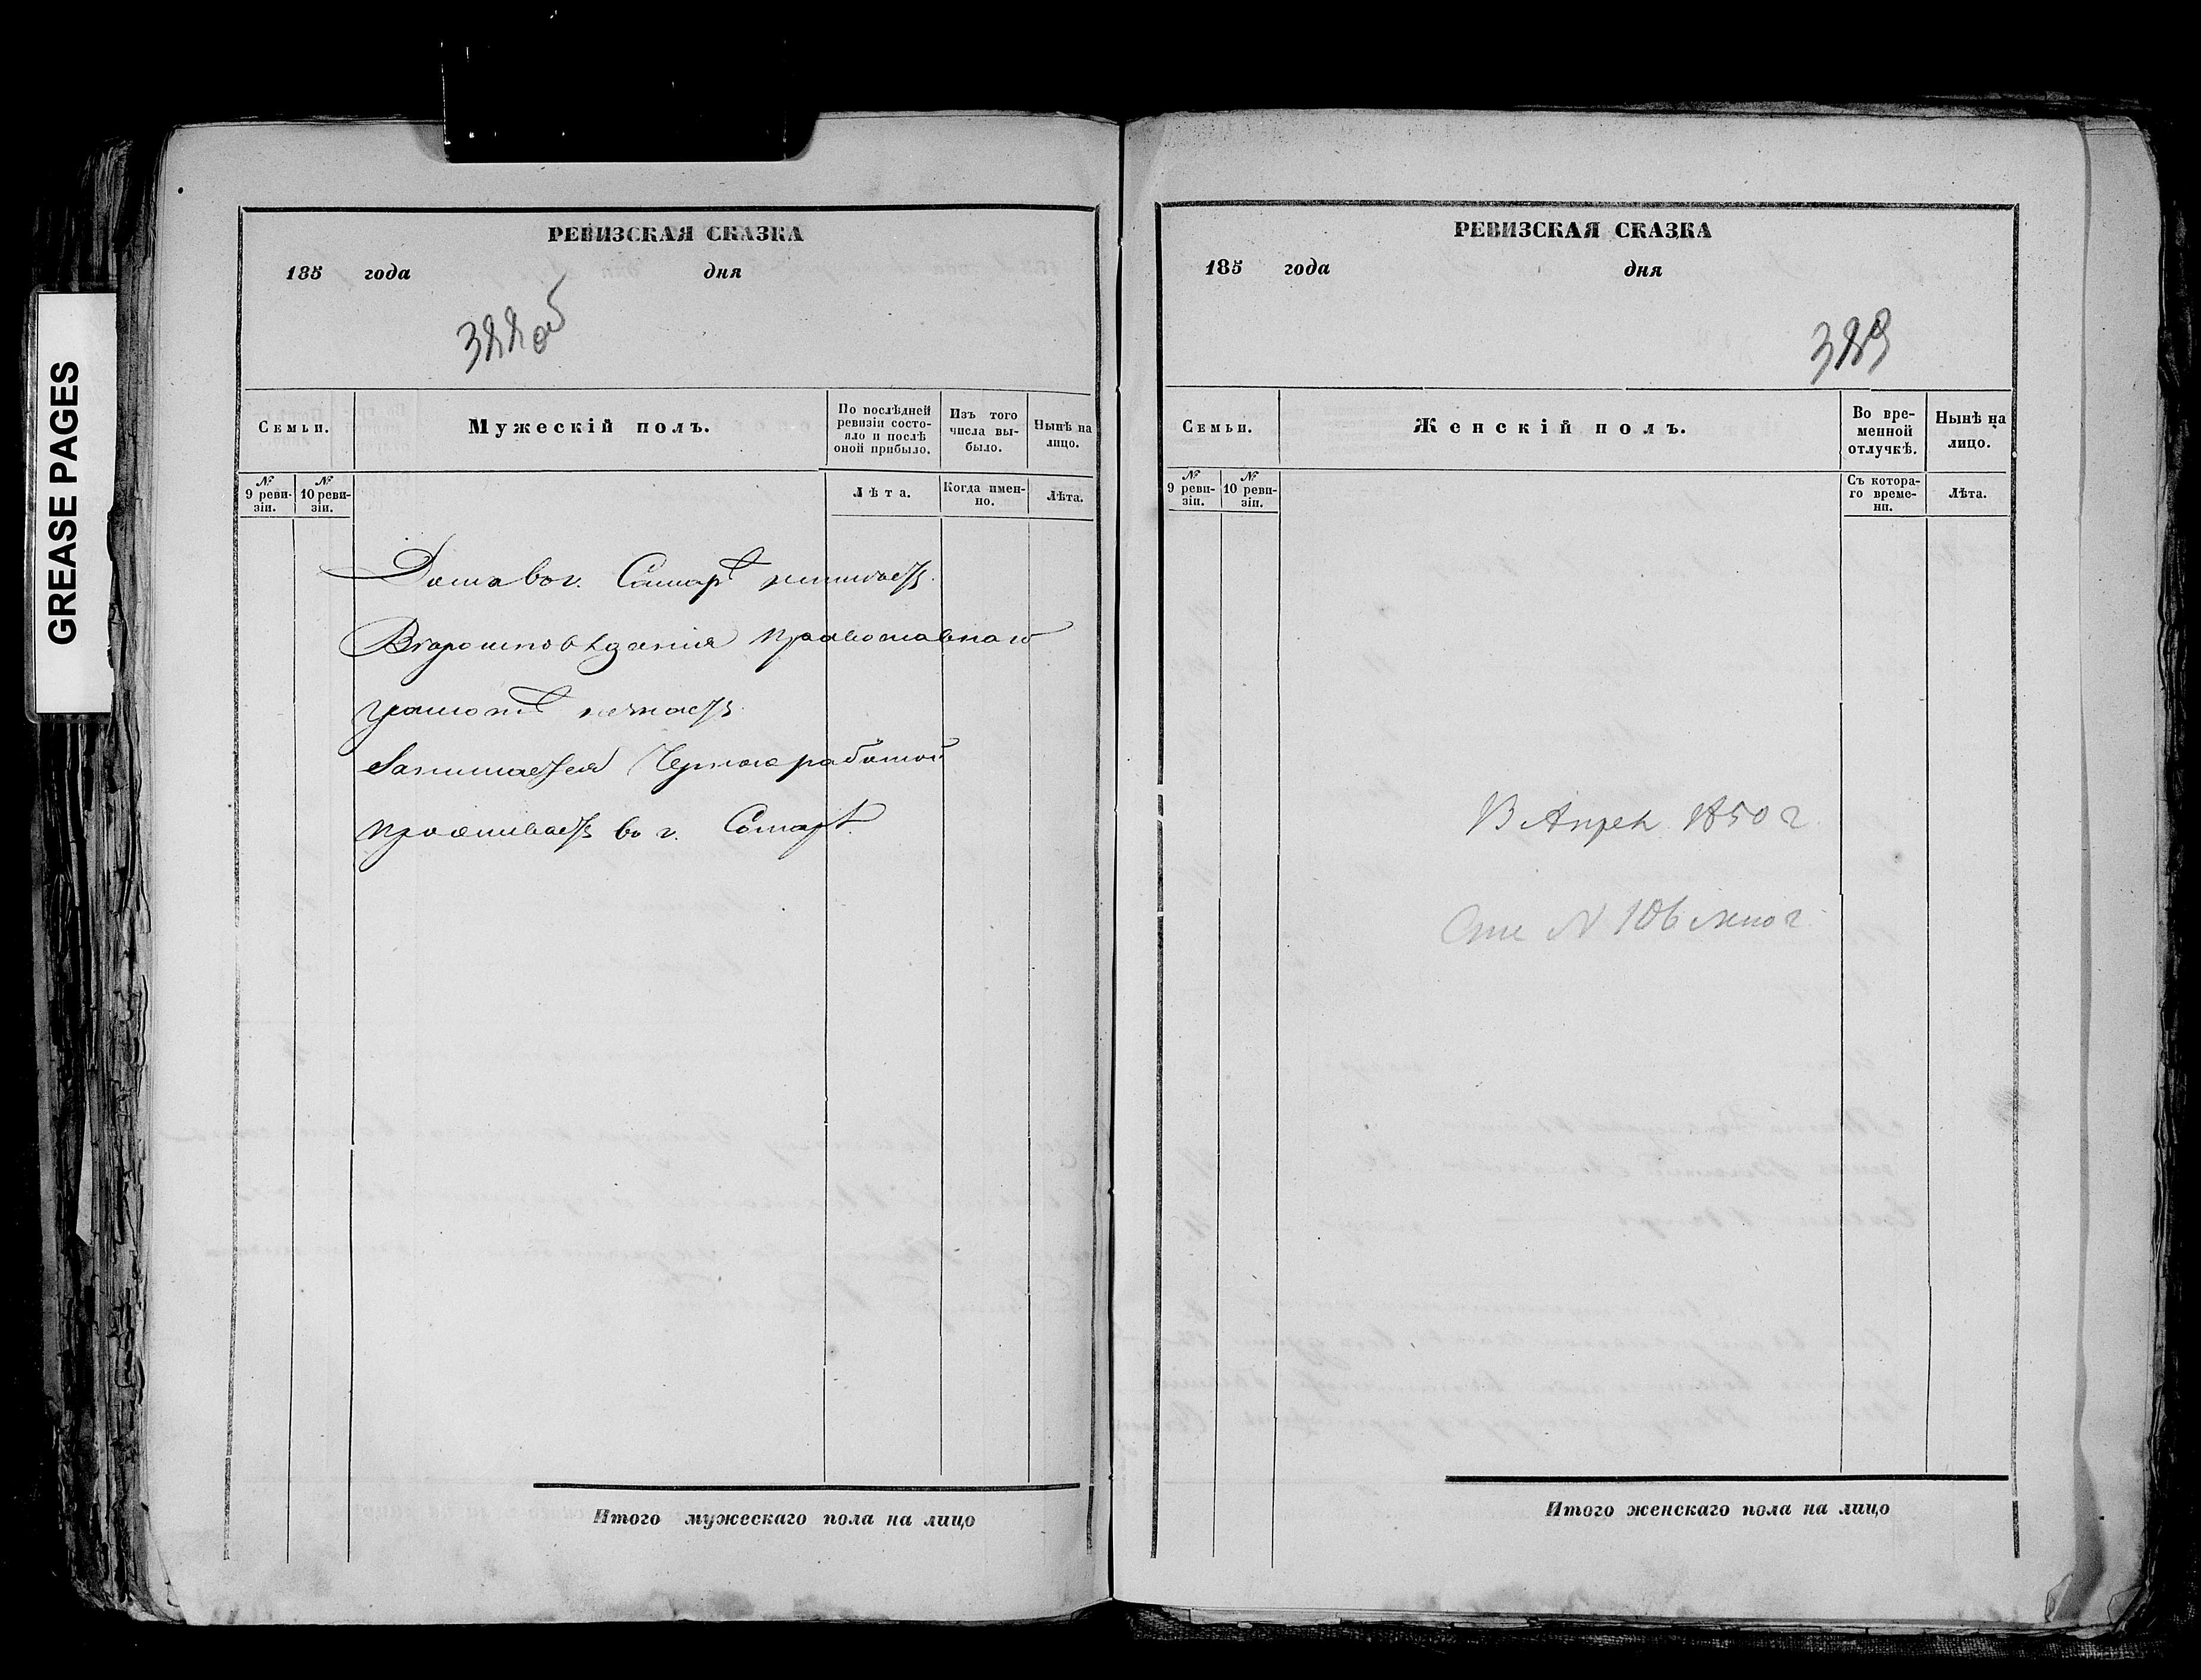 GREASE PAGES
РЕВИЗСКАЯ СКАЗКА
185 года дня
388об
Семьи.
Мужескій полъ.
По послѣдней ревизіи состояло и послѣ оной прибыло.
Изъ того числа выбыло.
Нынѣ на лицо.
№ 9 ревизіи.
№ 10 ревизіи.
Лѣта.
Когда именно.
Лѣта.
Дома во г. Самарѣ неимѣетъ
Вѣроисповѣданія православнаго
грамотѣ незнаетъ
Занимается Черною работой
проживаетъ во г. Самарѣ.
Итого мужескаго пола на лицо
РЕВИЗСКАЯ СКАЗКА
185 года дня
389
Семьи.
Женскій полъ.
Во временной отлучкѣ.
Нынѣ на лицо.
№ 9 ревизіи.
№ 10 ревизіи.
Съ котораго времени.
Лѣта.
В Апрел 1850 г
N 106
Итого женскаго пола на лицо